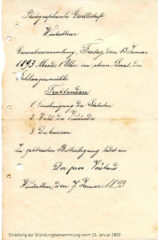 Photographische Gesellschaft
Winterthur
Generalversammlung, Freitag den 13. Januar
1893 Abends 8 Uhr im obern Local der
Schlangenmühle
Traktanden
1. Genehmigung der Statuten
2. Wahl des Vorstandes
3. Discussion
Zu zahlreicher Betheiligung ladet ein
Der prov. Vorstand
Winterthur, den 7. Januar 1893
Einladung zur Gründungsversammlung vom 13. Januar 1893